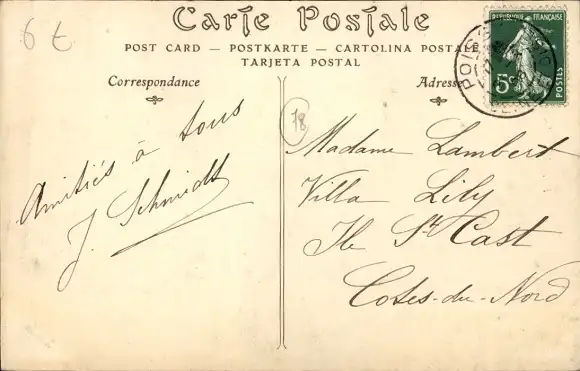 6 €
Carte Postale
POST CARD — POSTKARTE — CARTOLINA POSTALE
TARJETA POSTAL
Correspondance
Adresse
REPUBLIQUE FRANÇAISE
5c
POSTES
78
Amitiés à tous
J. Schmidt
Madame Lambert
Villa Lily
Ile St Cast
Cotes-du-Nord